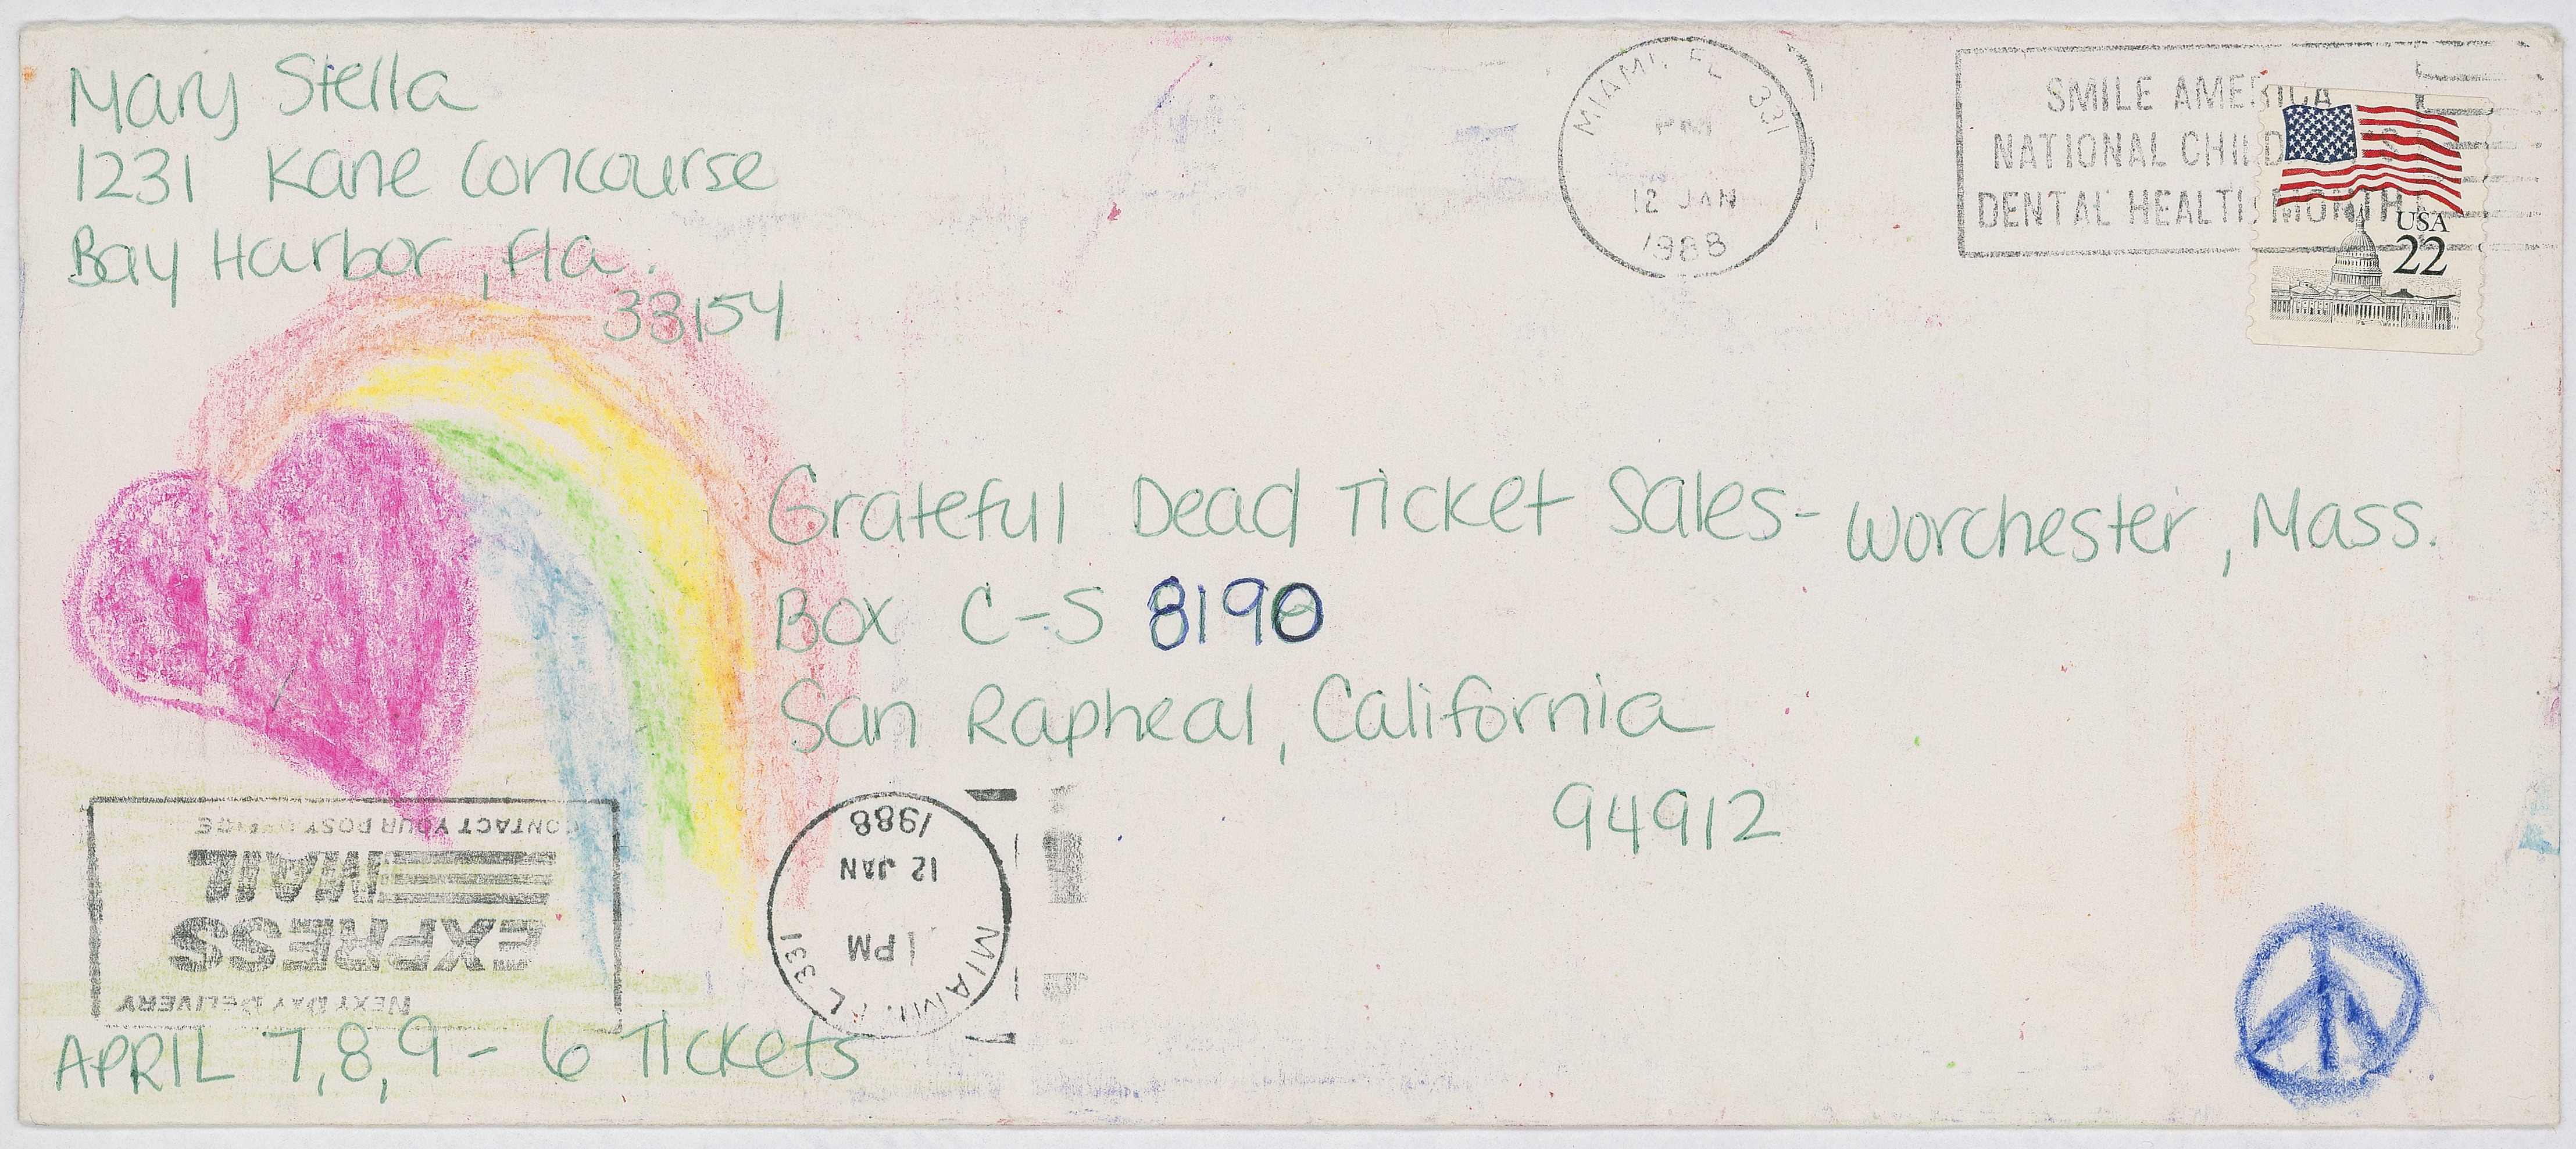 Mary Stella
1231 Kane Concourse
Bay Harbor, Fla.
33154
MIAMI, FL 331
PM
12 JAN
1988
SMILE AMERICA
NATIONAL CHILD
DENTAL HEALTH MONTH
USA
22
Grateful Dead Ticket Sales - Worchester, Mass.
Box C-S 8190
San Rapheal, California
94912
CONTACT YOUR POST OFFICE
MAIL
EXPRESS
NEXT DAY DELIVERY
1988
12 JAN
1 PM
MIAMI, FL 331
APRIL 7,8,9 - 6 Tickets